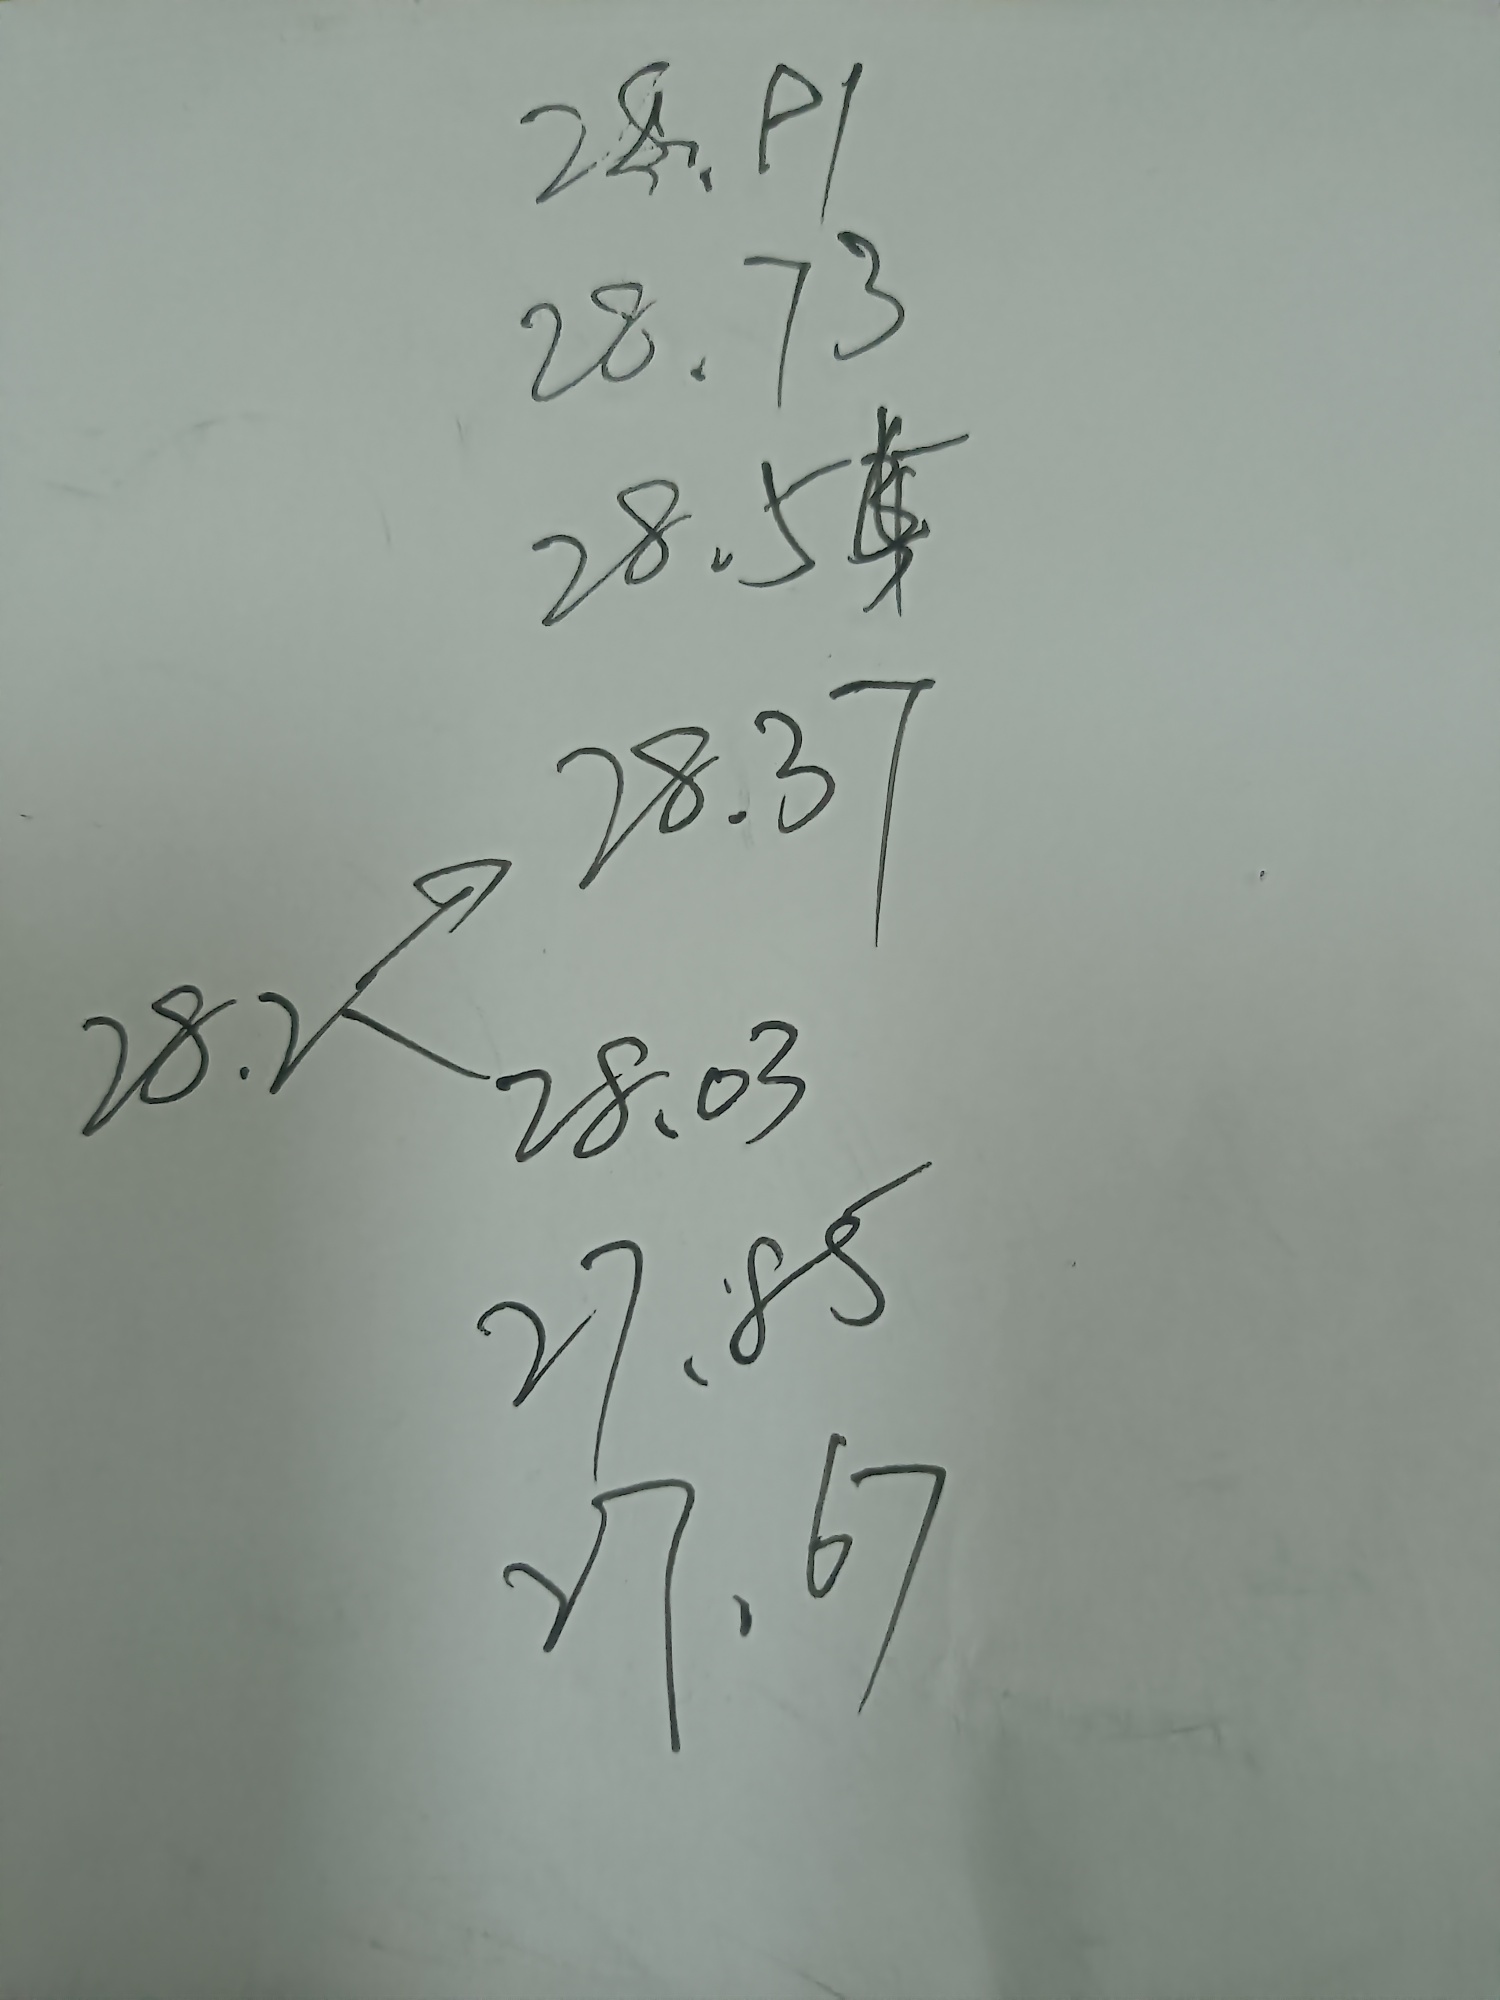 28.91
28.73
28.55
28.37
28.2
28.03
27.85
27.67